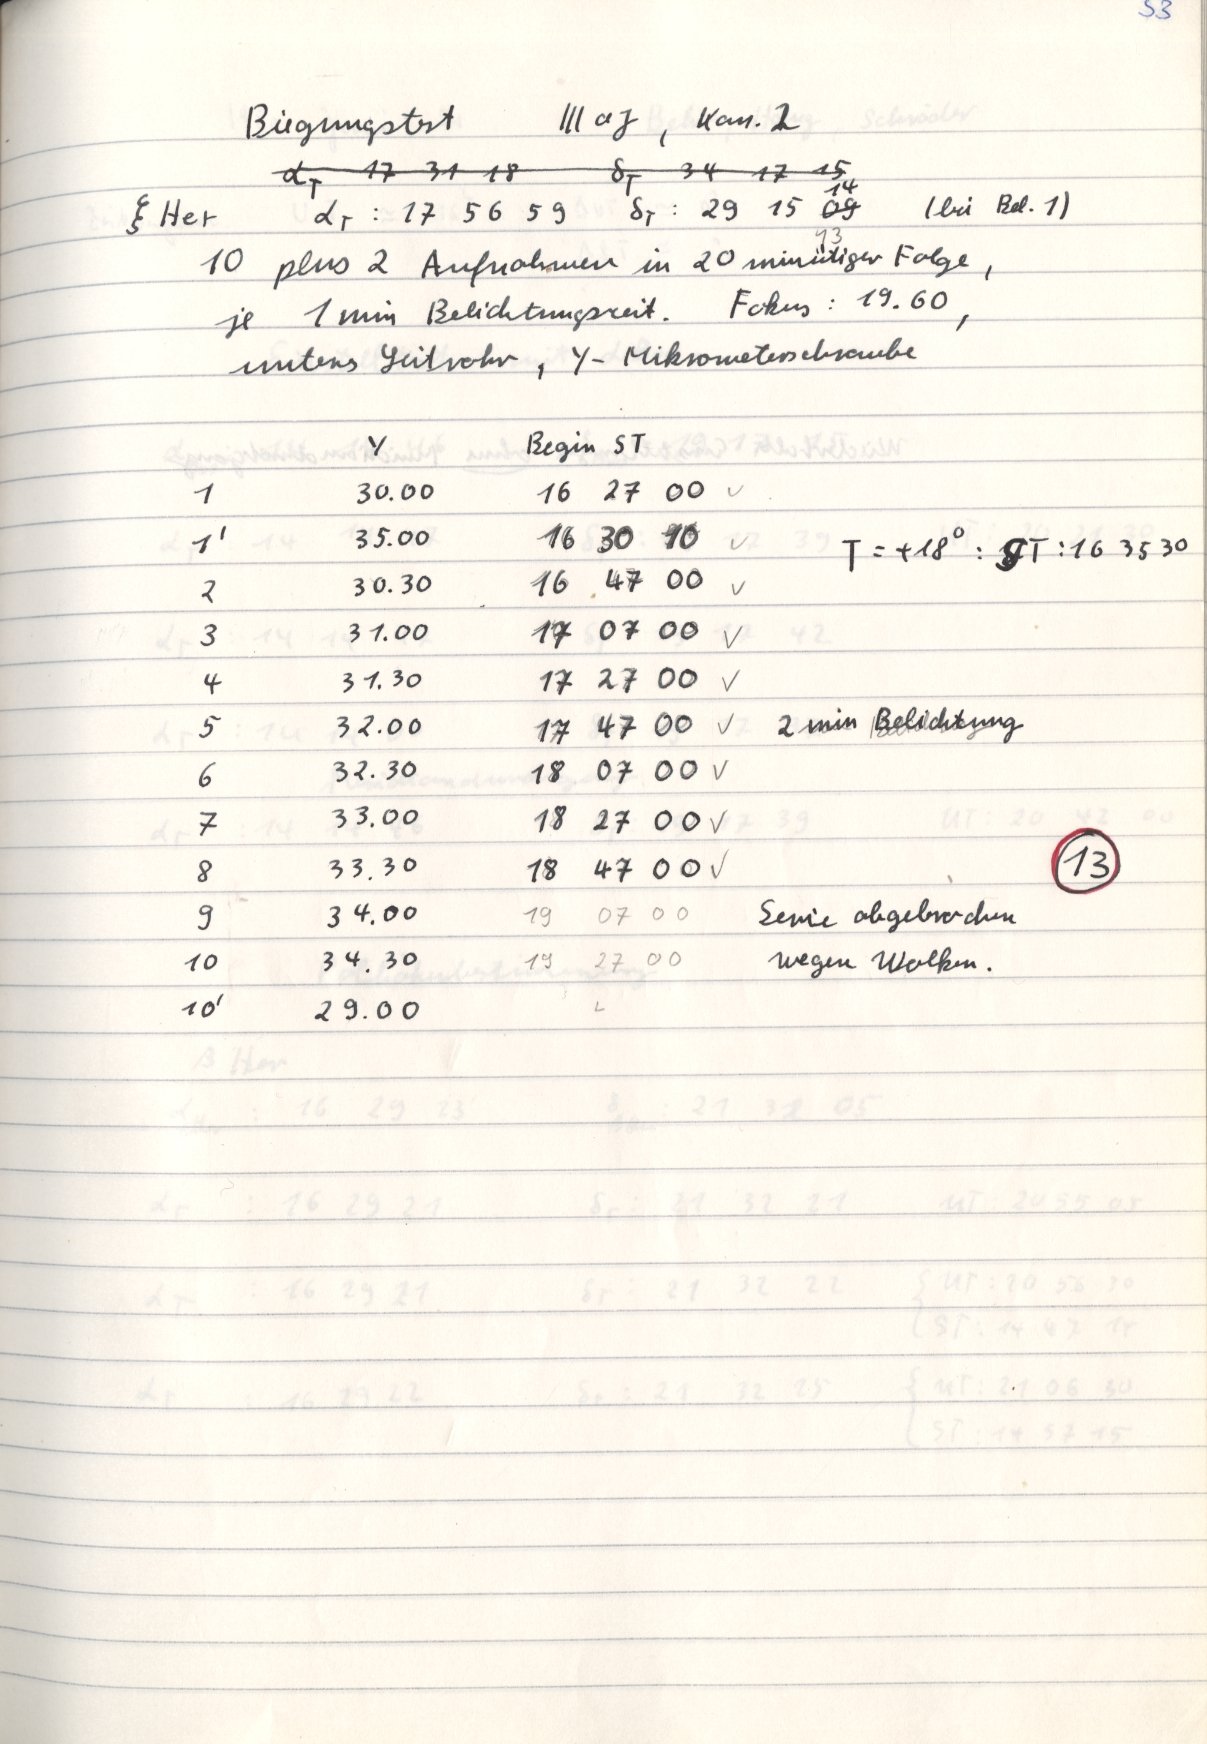 53
Biegungstest III aJ, Kas. 2
α_T 17 31 18 δ_T 34 17 15
14
ξ Her α_T : 17 56 59 δ_T : 29 15 09 (bei Bel. 1)
13
10 plus 2 Aufnahmen in 20 minütiger Folge,
je 1 min Belichtungszeit. Fokus : 19.60,
unteres Leitrohr, Y-Mikrometerschraube
Y Begin ST
1 30.00 16 27 00 ✓
1' 35.00 16 30 10 ✓ T = +18° : ST : 16 35 30
2 30.30 16 47 00 ✓
3 31.00 17 07 00 ✓
4 31.30 17 27 00 ✓
5 32.00 17 47 00 ✓ 2 min Belichtung
6 32.30 18 07 00 ✓
7 33.00 18 27 00 ✓
8 33.30 18 47 00 ✓ 13
9 34.00 19 07 00 Serie abgebrochen
10 34.30 19 27 00 wegen Wolken.
10' 29.00